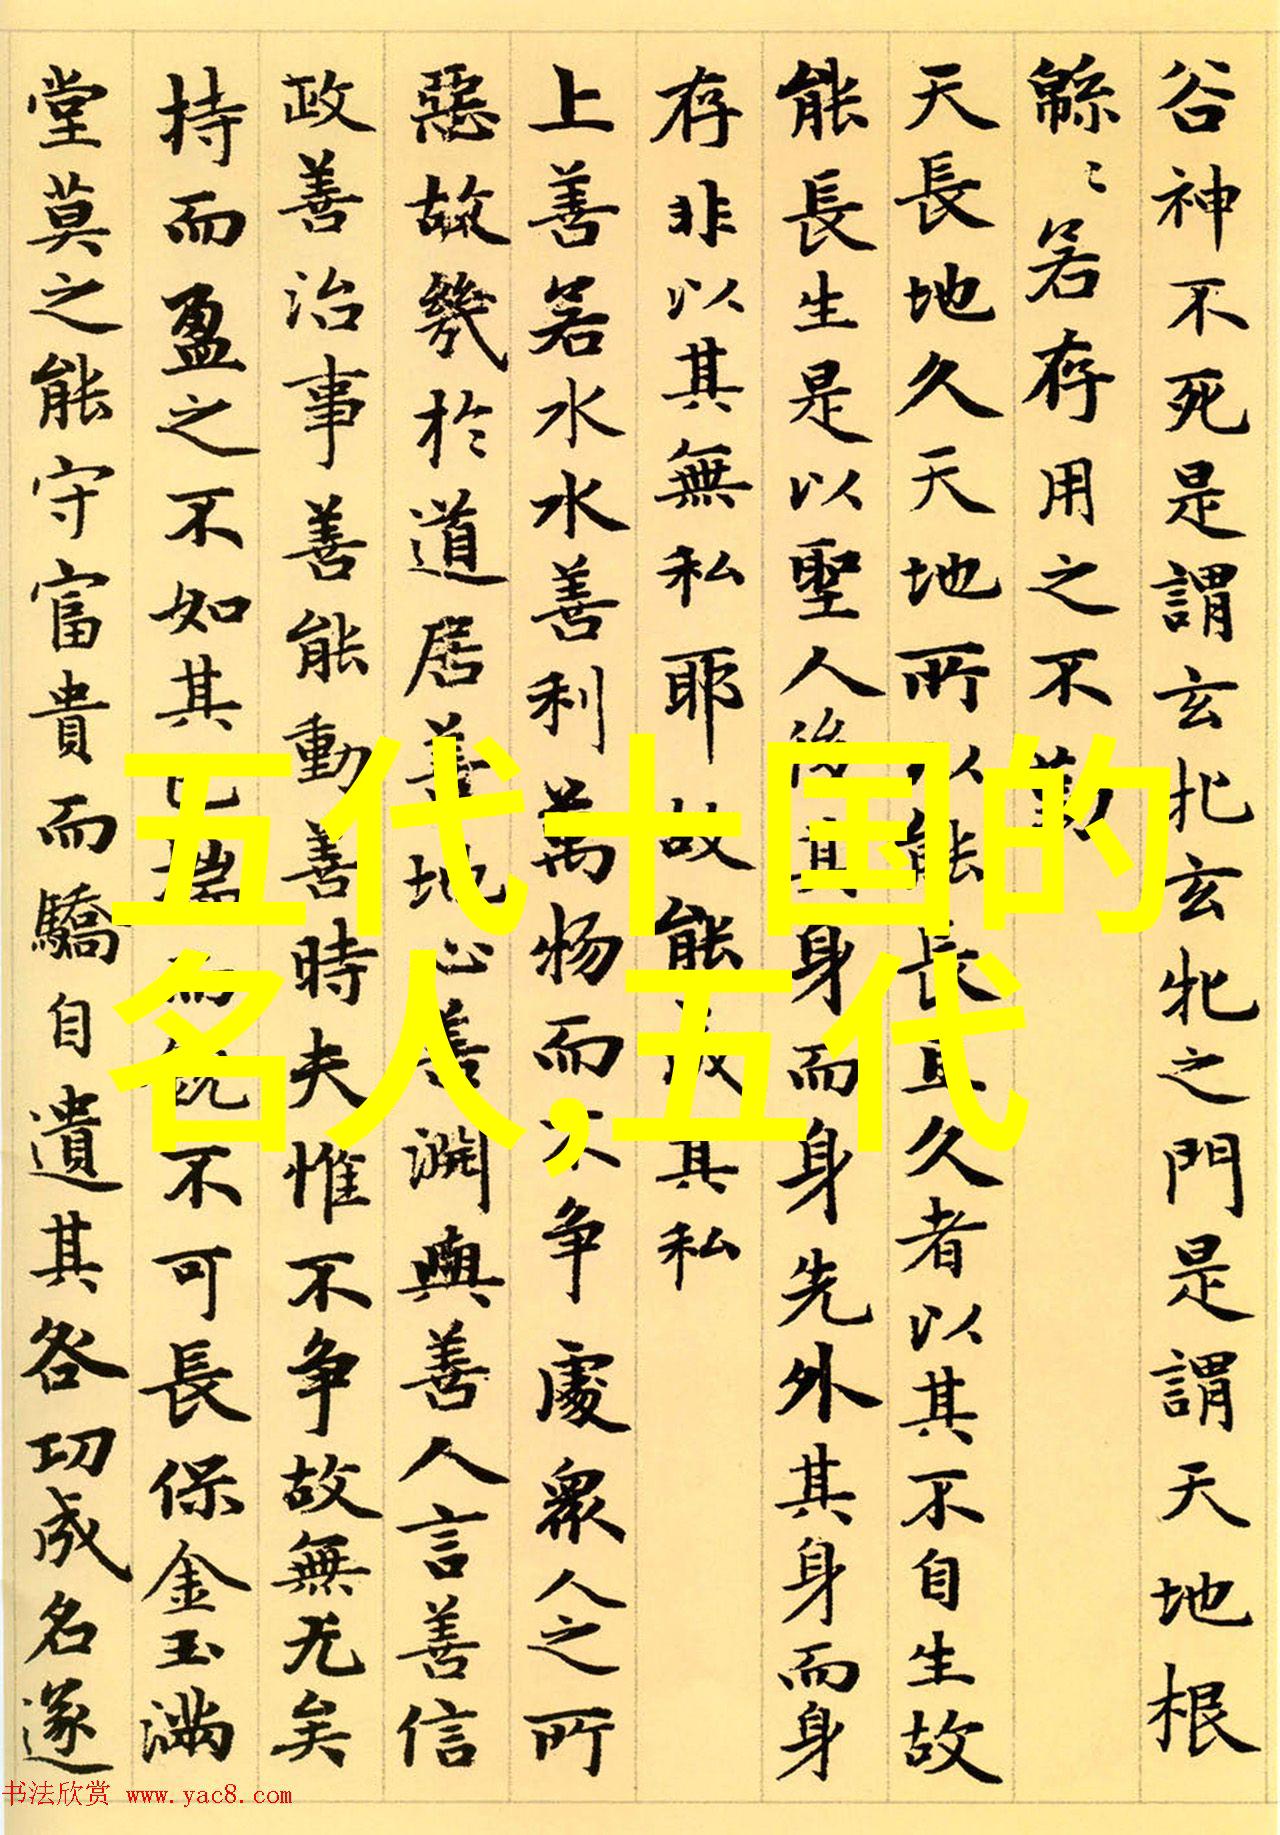 谷神不死是謂玄牝玄牝之門是謂天地根
緜〻若存用之不勤
天長地久天地所以能長且久者以其不自生故
能長生是以聖人後其身而身先外其身而身
存非以其無私耶故能成其私
上善若水水善利萬物而不争處衆人之所
惡故幾於道居善地心善淵與善人言善信
政善治事善能動善時夫惟不争故無尤矣
持而盈之不如其已揣而銳不可長保金玉滿
堂莫之能守富貴而驕自遺其咎功成名遂
五代十国的
名人,五代
书法欣赏 www.yac8.com